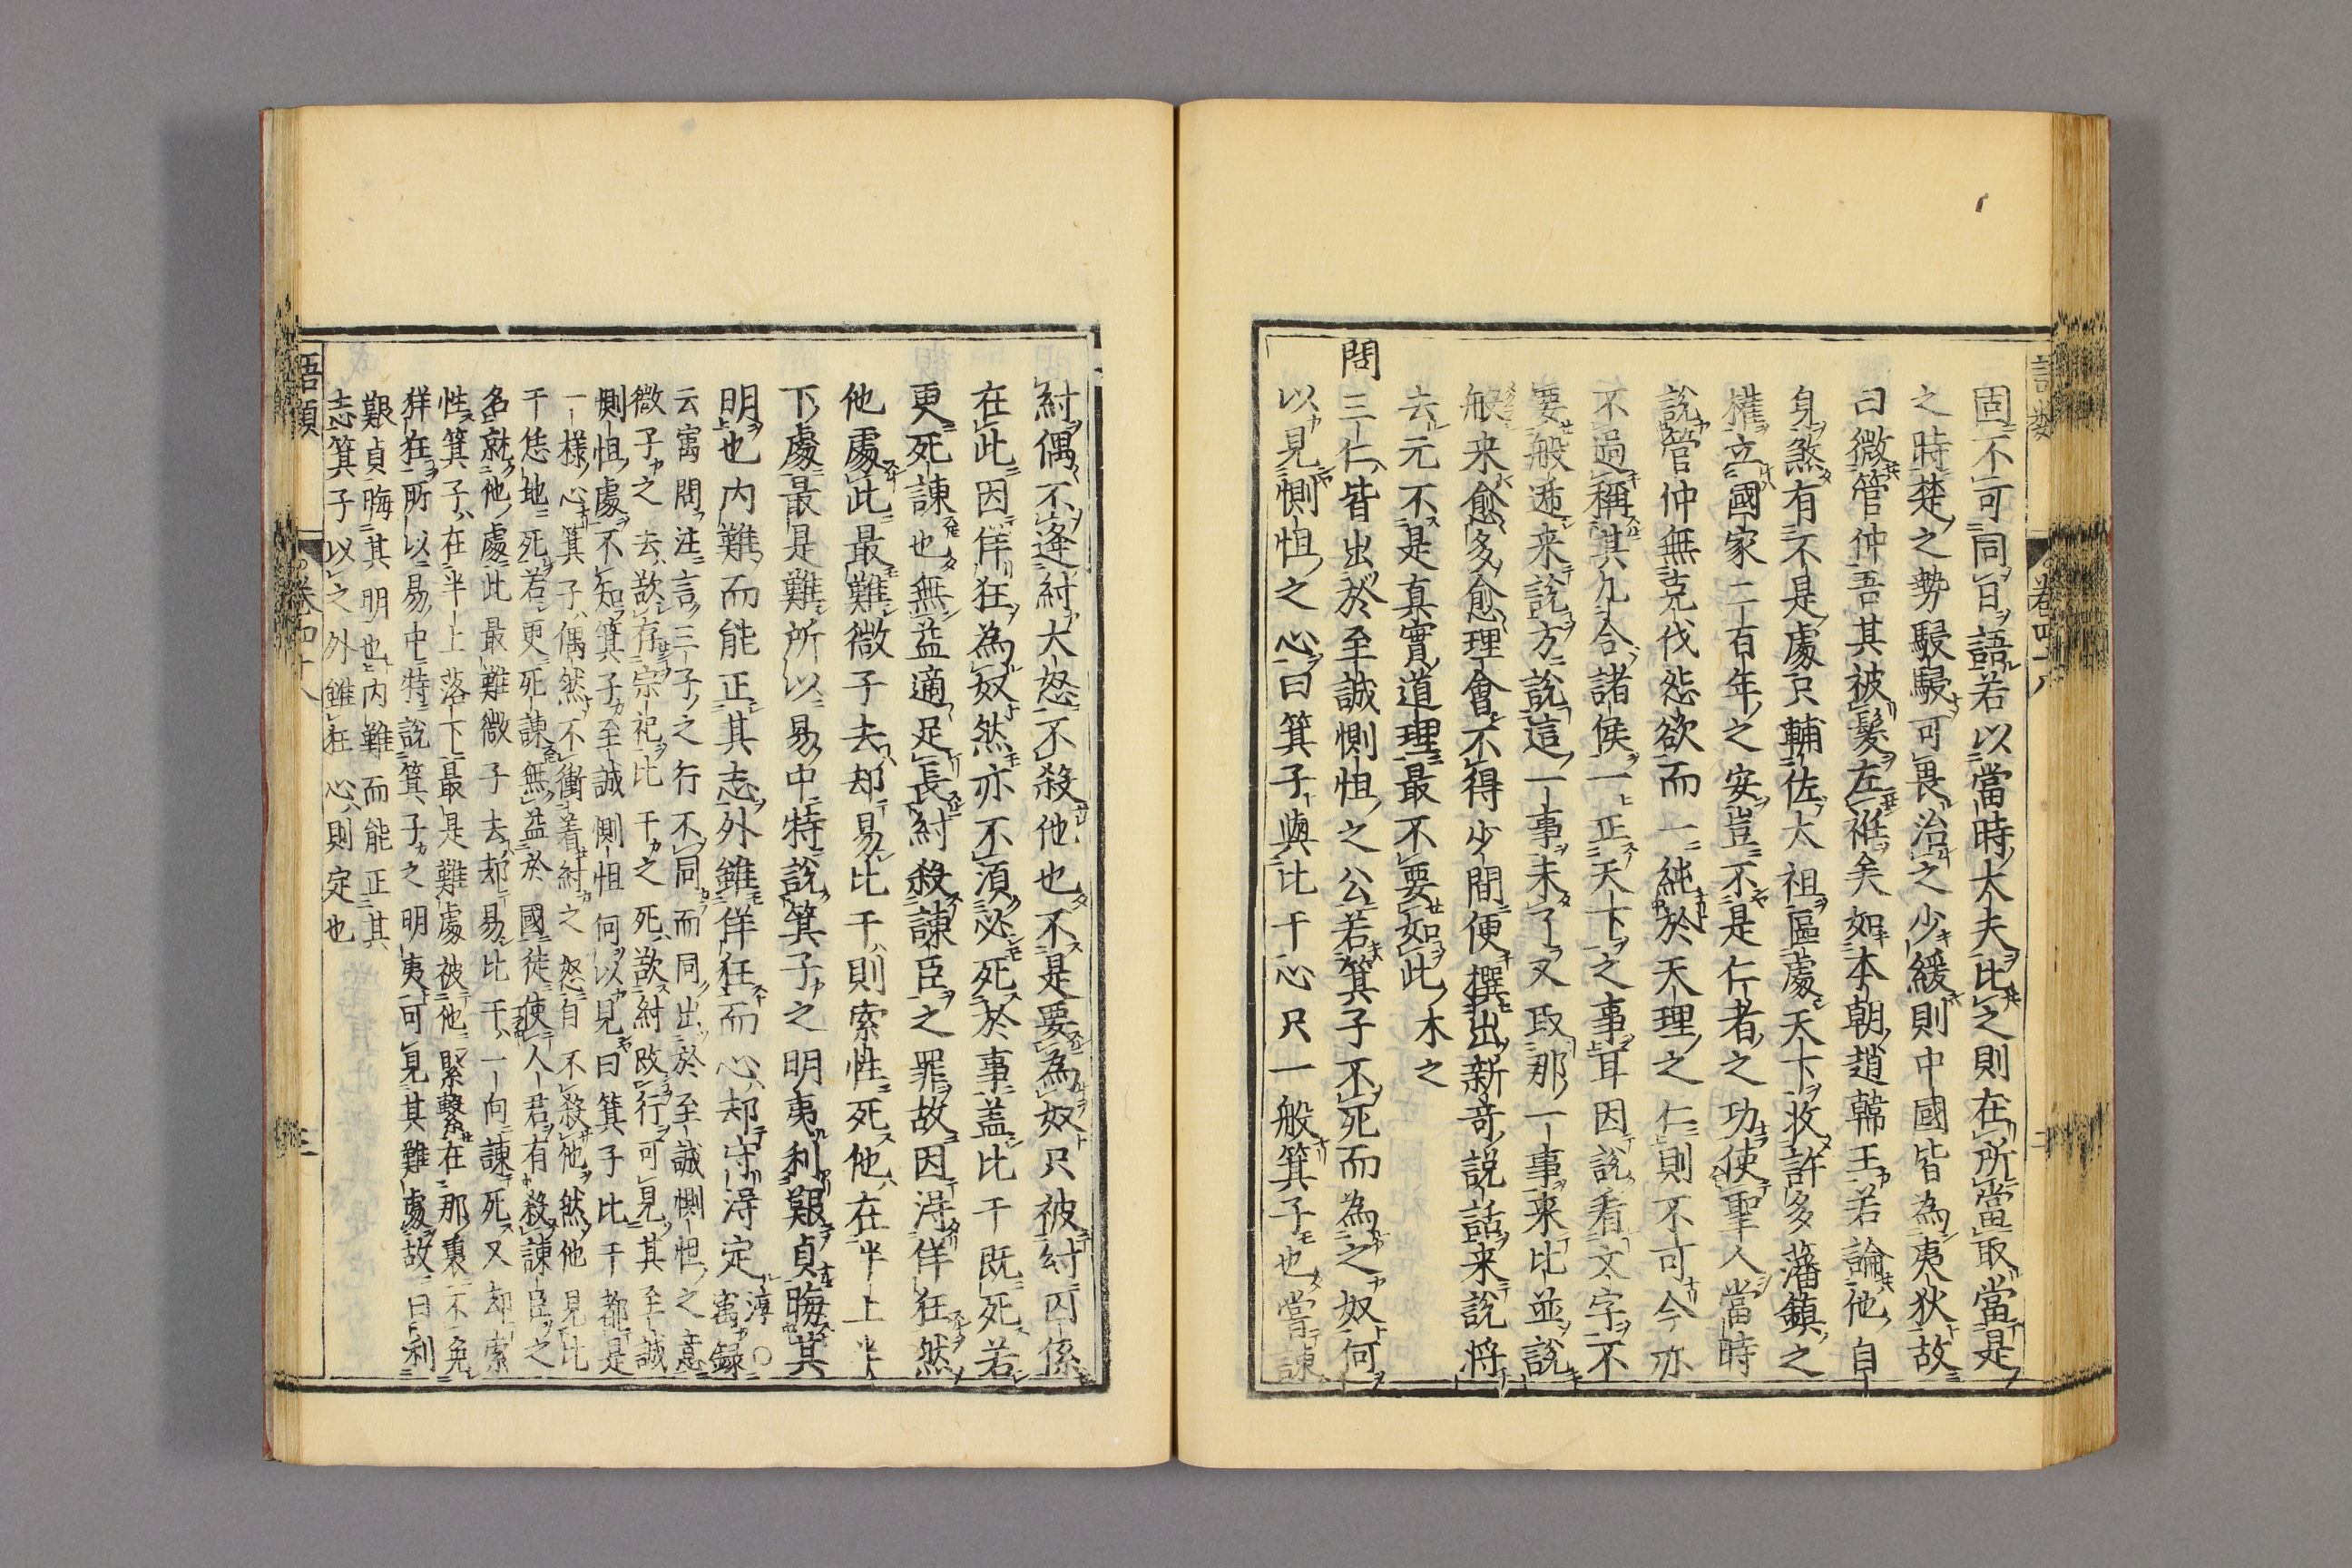 固不可同日語若以當時大夫比之則在所當取當是
之時楚之勢駸駸可畏治之少緩則中國皆為夷狄故
曰微管仲吾其被髮左衽矣如本朝趙韓王若論他自
身煞有不是處只輔佐太祖區處天下收許多藩鎮之
權立國家二百年之安豈不是仁者之功使聖人當時
說管仲無克伐怨欲而一純於天理之仁則不可今亦
不過稱其九合諸侯一正天下之事耳因說看文字不
要般遞来說方說這一事未了又取那一事来比並說
般来愈多愈理會不得少間便撰出新奇説話来說将
去元不是真實道理最不要如此木之
問三仁皆出於至誠惻怛之公若箕子不死而為之奴何
以見惻怛之心曰箕子與比干心只一般箕子也嘗諫
紂偶不逢紂大怒不殺他也不是要為奴只被紂囚係
在此因佯狂為奴然亦不須必死於事盖比干既死若
更死諫也無益適足長紂殺諫臣之罪故因淂佯狂然
他處此最難微子去却易比干則索性死他在半上半
下處最是難所以易中特說箕子之明夷利艱貞晦其
明也内難而能正其志外雖佯狂而心却守淂定淳○寓録
云寓問注言三子之行不同而同出於至誠惻怛之意
微子之去欲存宗祀比干之死欲紂改行可見其至誠
惻怛處不知箕子至誠惻怛何以見曰箕子比干都是
一樣心箕子偶然不衝着紂之怒自不殺他然他見比
干恁地死若更死諫無益於國徒使人君有殺諫臣之
名就他處此最難微子去却易比干一向諫死又却索
性箕子在半上落下最是難處被他緊繫在那裏不免
佯狂所以易中特說箕子之明夷可見其難處故曰利
艱貞晦其明也内難而能正其
志箕子以之外雖狂心則定也
語類
卷四十八
三